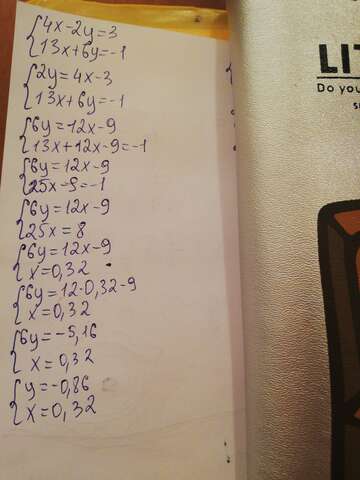 4x-2y=3
13x+6y=-1
2y=4x-3
13x+6y=-1
6y=12x-9
13x+12x-9=-1
6y=12x-9
25x-9=-1
6y=12x-9
25x=8
6y=12x-9
x=0,32
6y=12·0,32-9
x=0,32
6y=-5,16
x=0,32
y=-0,86
x=0,32
LIT
Do you